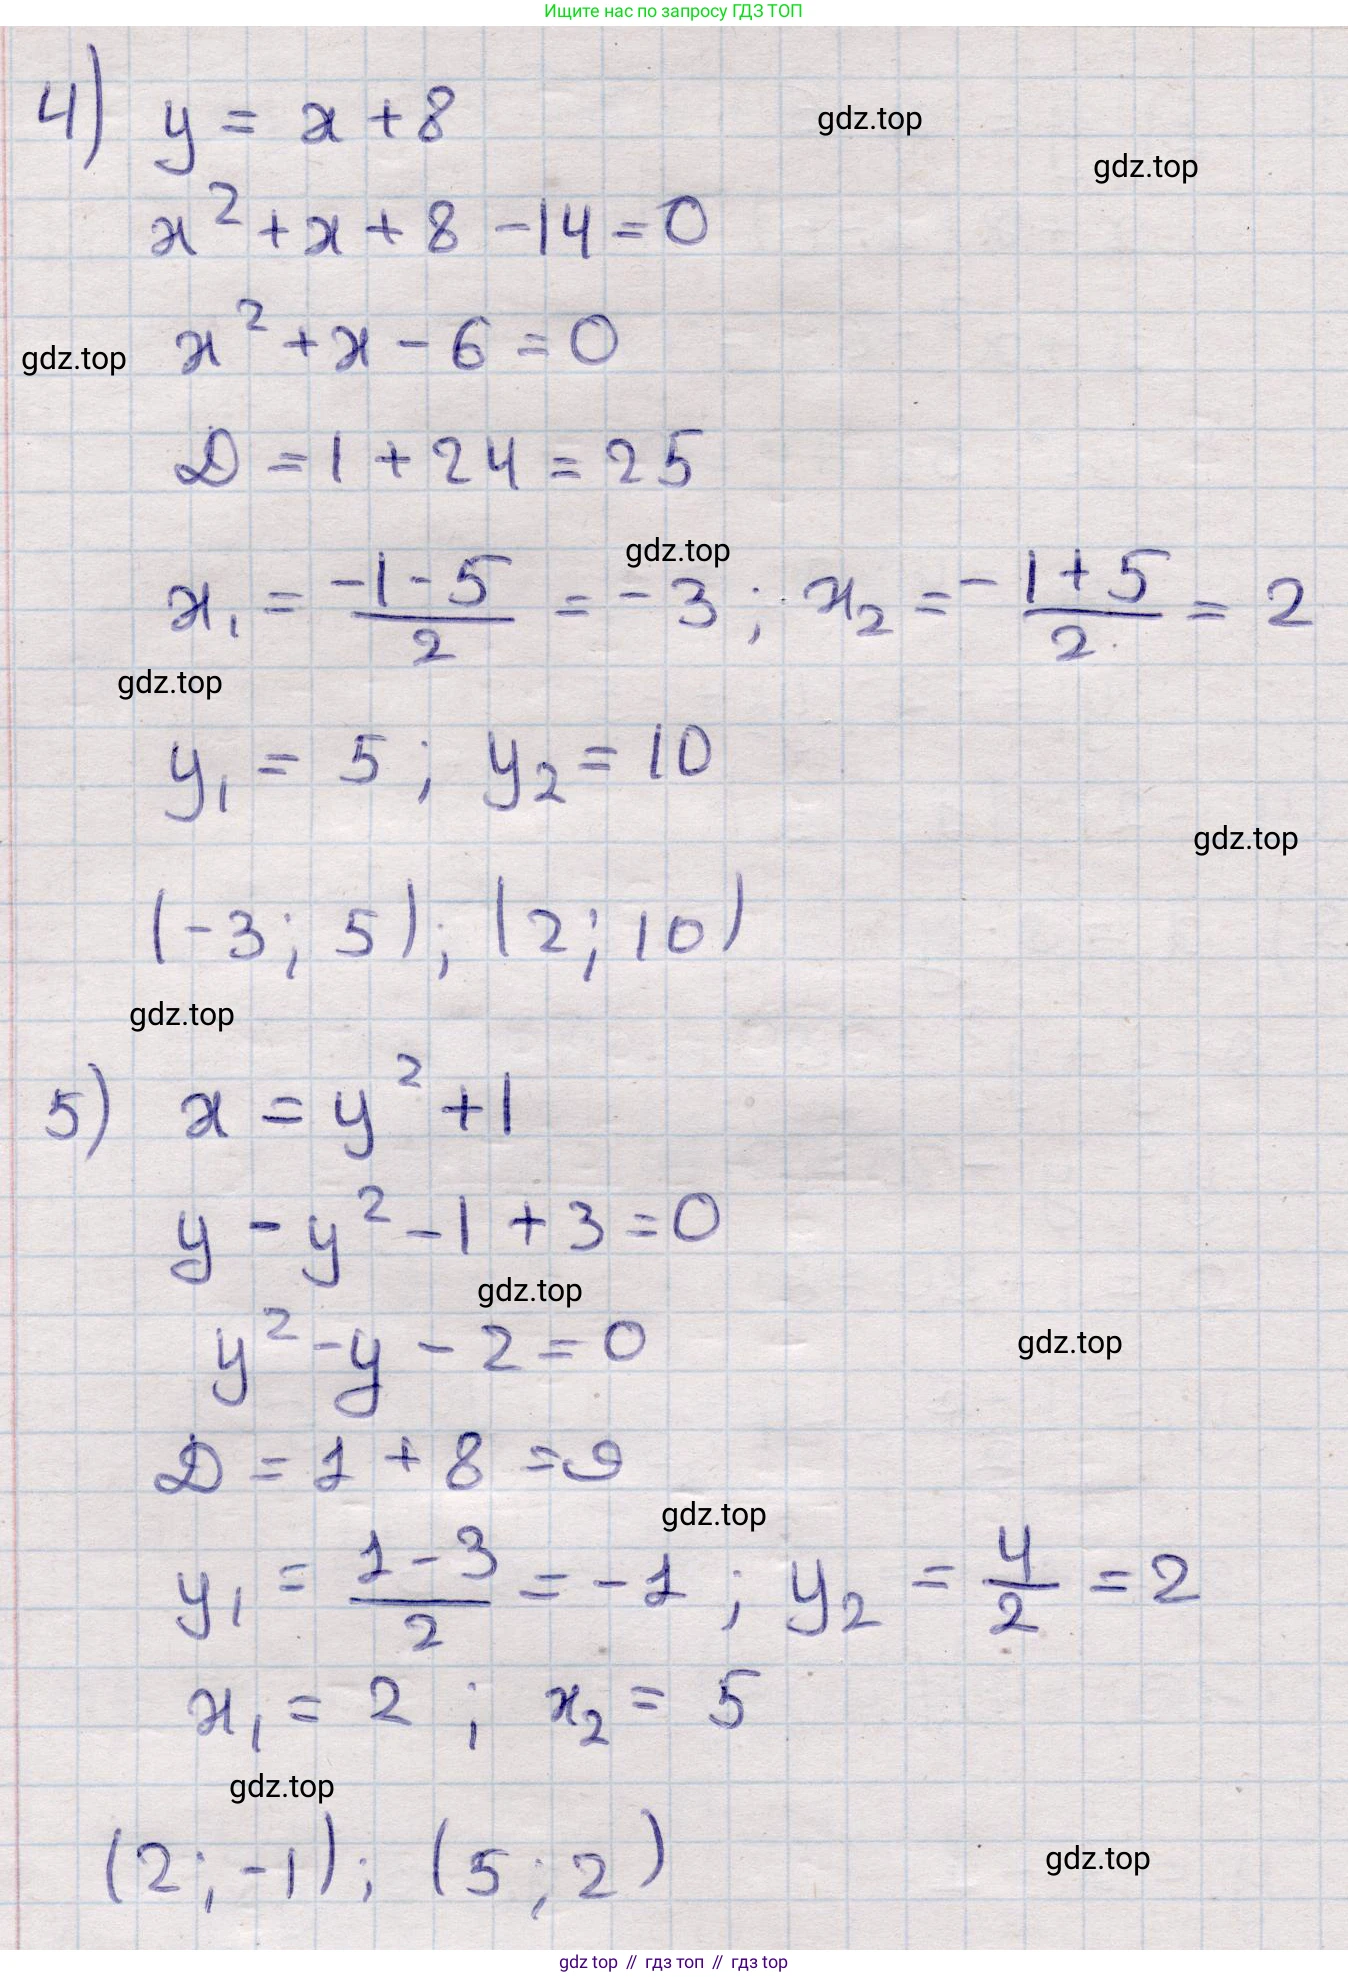 Ищите нас по запросу ГДЗ ТОП
4) y = x + 8
gdz.top
gdz.top
x² + x + 8 - 14 = 0
x² + x - 6 = 0
gdz.top
D = 1 + 24 = 25
gdz.top
x₁ = (-1-5)/2 = -3 ; x₂ = -(1+5)/2 = 2
gdz.top
y₁ = 5 ; y₂ = 10
gdz.top
(-3; 5); (2; 10)
gdz.top
5) x = y² + 1
y - y² - 1 + 3 = 0
gdz.top
y² - y - 2 = 0
gdz.top
D = 1 + 8 = 9
gdz.top
y₁ = (1-3)/2 = -1 ; y₂ = 4/2 = 2
x₁ = 2 ; x₂ = 5
gdz.top
(2; -1); (5; 2)
gdz.top
gdz top // гдз топ // гдз top